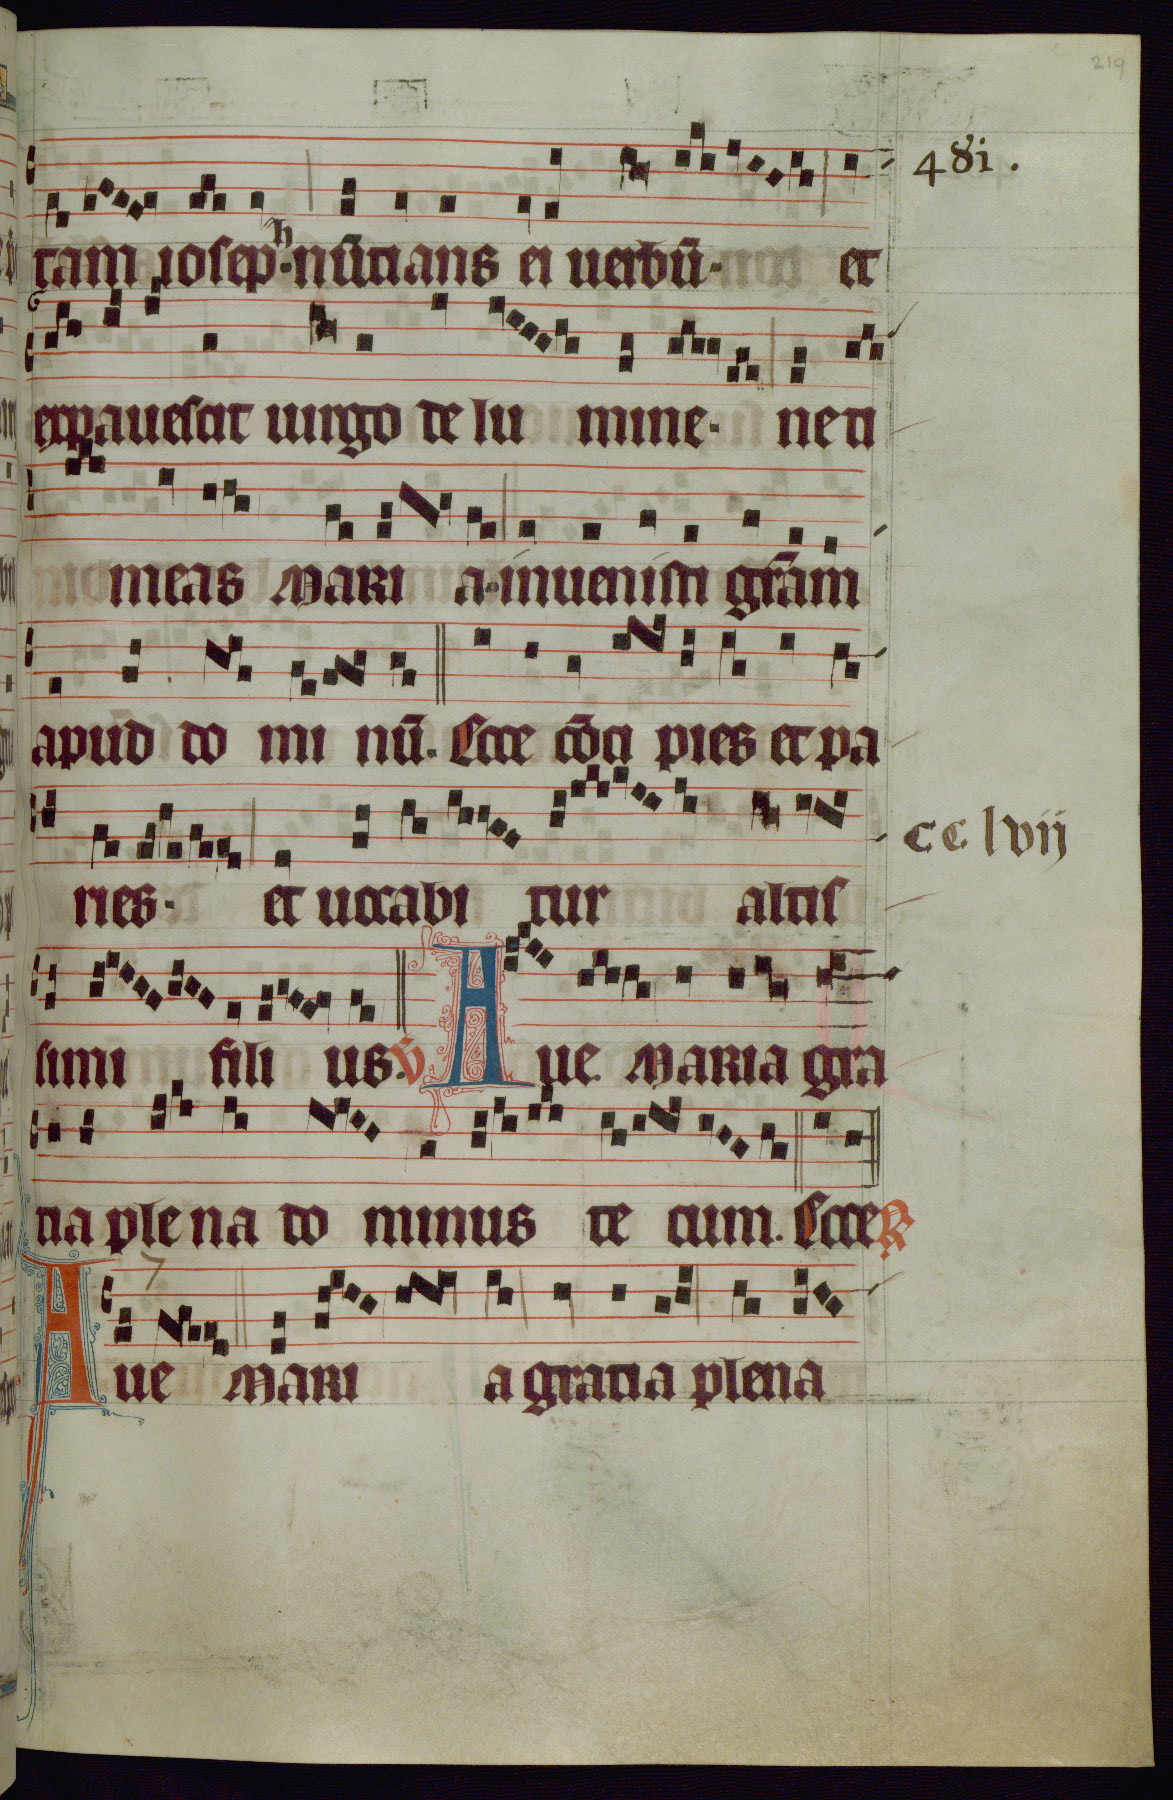 219
48i.
tam ioseph·nūtians ei uerbū· et
expauescit uirgo de lu mine· ne ti
meas mari a·inuenisti grām
apud do mi nū. Ecce cōci pies et pa
cclvij
ries· et uocabi tur altis
simi fili us. v̄ Aue maria gra
tia plena do minus te cum. Ecce R
7
Aue mari a gratia plena